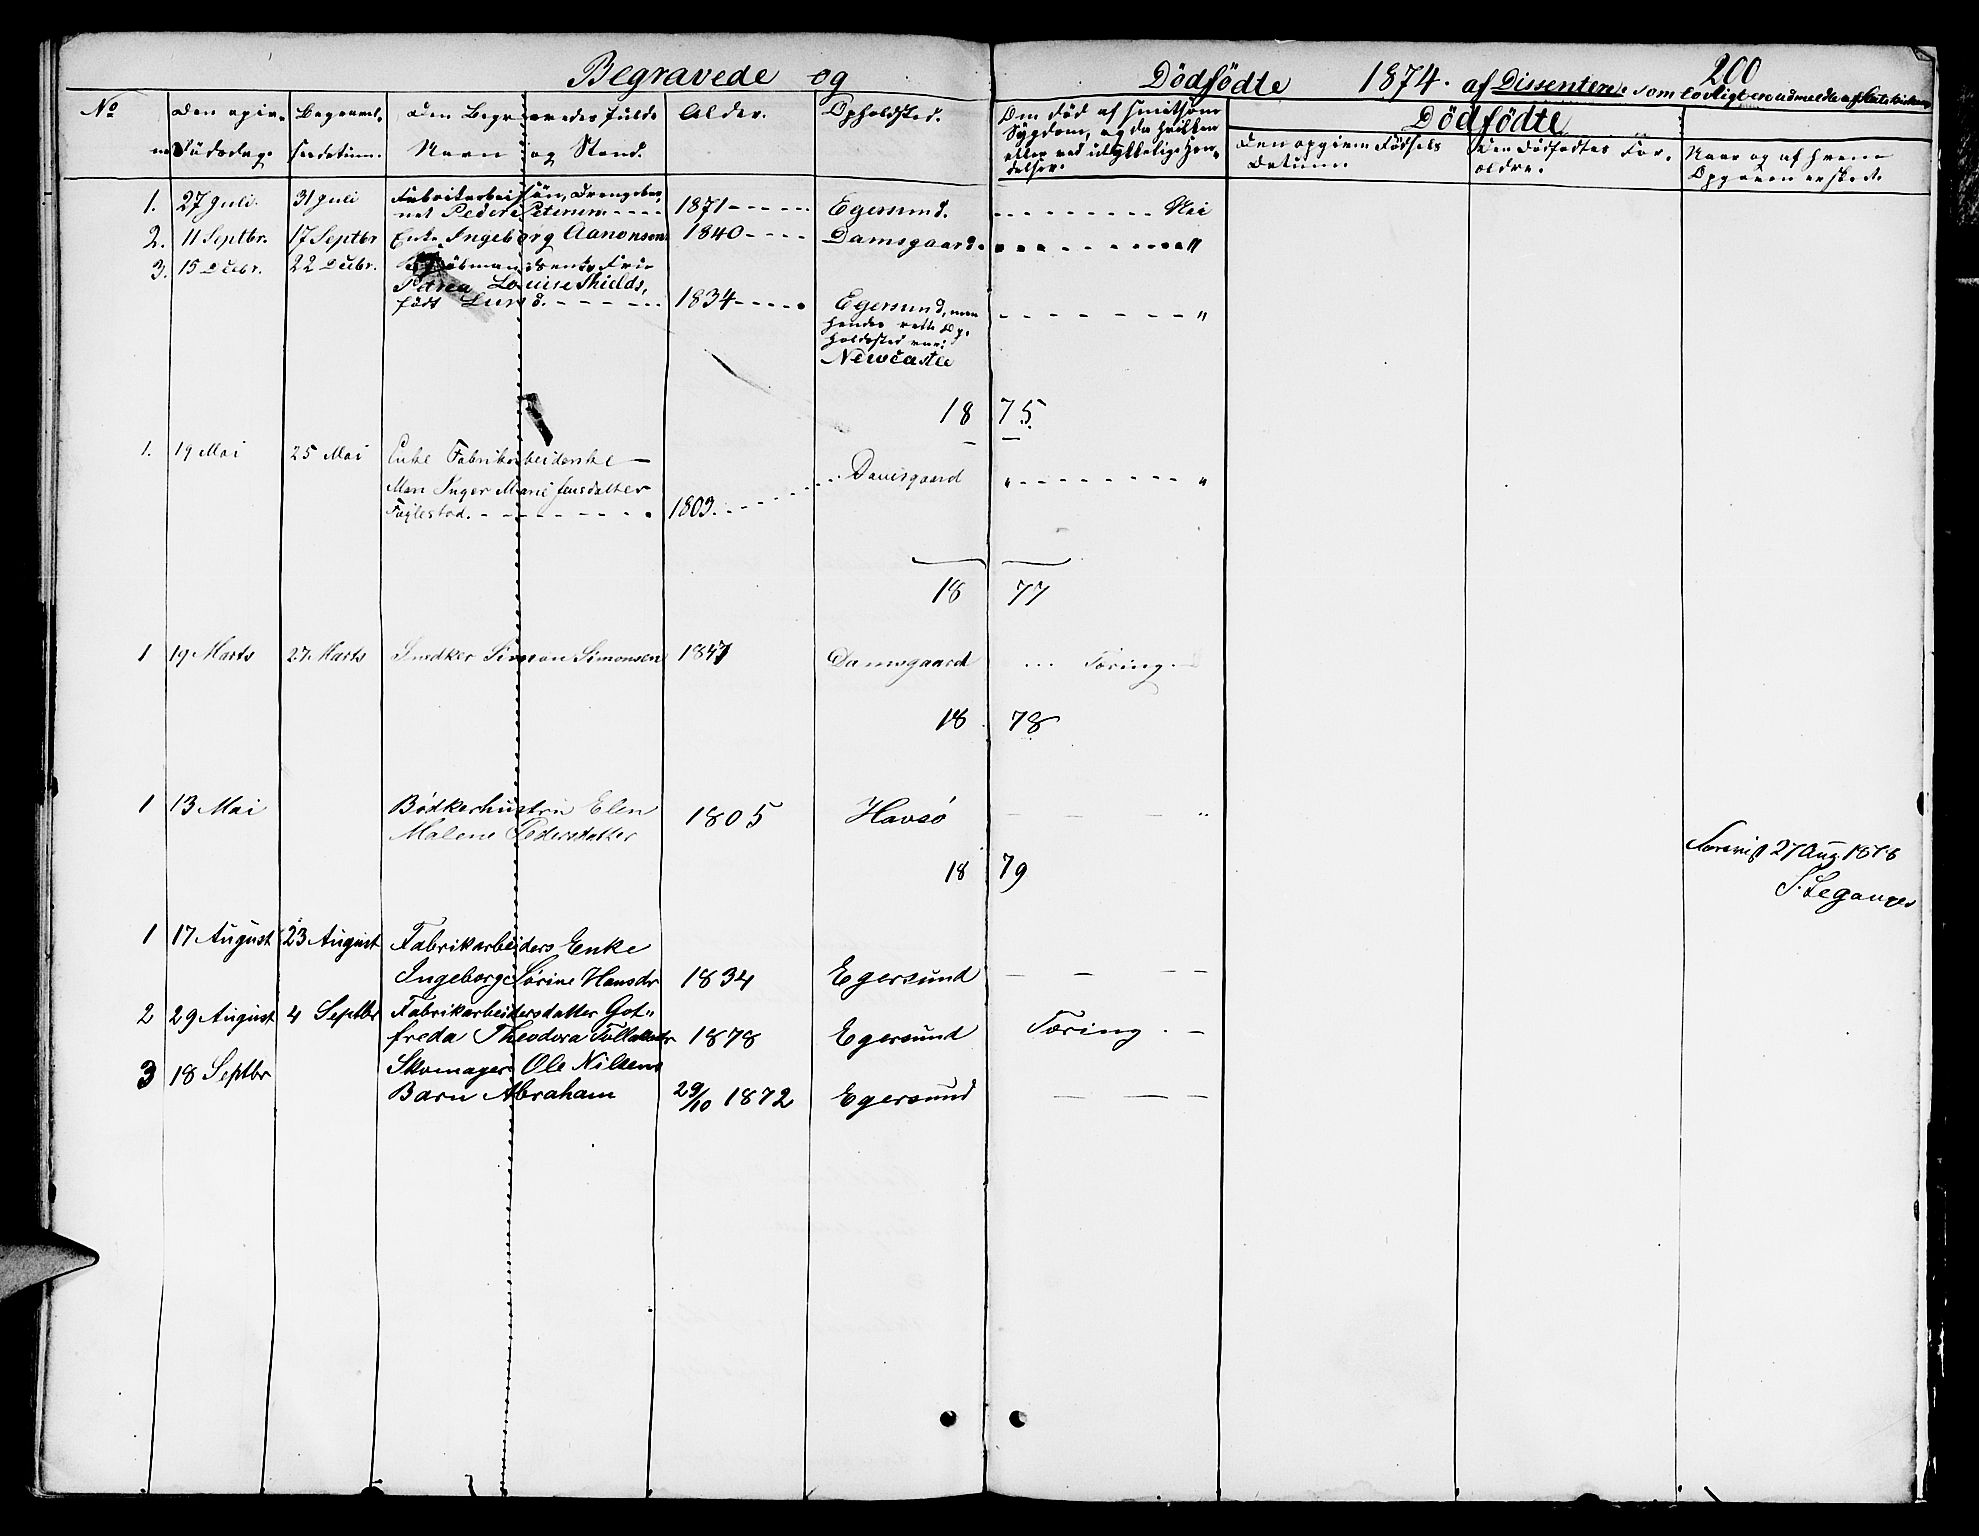 200
Begravede og Dödfödte 1874. af Dissentere, som lovligt ere udmeldte af Statskirken
No
Den opiv-
ne Dödsdag.
Begravel-
sesdatum.
Den Begravedes fulde
Navn og Stand.
Alder.
Opholdsted.
Om död af smitsom
Sygdom, og da hvilken
eller ved ulykkelig Hæn-
delser.
Dödfödte
Den opgivne Födsels
Datum.
Den Dödfödtes For-
ældre.
Naar og af hvem
Opgaven er skeet.
1. 27 Juli. 31 Juli Fabrikarbei sön, Drengebar-
net Peder Petersen - - - - 1871 - - - - - Egersund. - - - - - - - - Nei
2. 11 Septbr. 17 Septbr Enke Ingeborg Aanonsen 1840 - - - - Damsgaard. - - - - - - - - "
3. 15 Decbr. 22 Decbr. Frue
Petrea Louise Shields,
født Lund. - - - - - - 1834 - - - - Egersund, men - - - - - - - "
hendes rette Op-
holdssted var:
Newcastle
18 75.
1. 19 Mai 25 Mai Enke Fabrikarbeidenke —
Inger Marie Jensdatter
Fuglestad. - - - - - - - - 1803. - - - - Damsgaard " - - - - - - - "
18 77
1 19 Marts 27 Marts Snedker Simon Simonsen 1847 Damsgaard ... Tæring. -
18 78
1 13 Mai Bödkerhustru Elen
Malene Pedersdatter 1805 Havsö — — — "
Forevist 27 Aug. 1878
18 79
1 17 August 23 August Fabrikarbeiders Enke
Ingeborg Sörine Hansdr 1834 Egersund — — — —
2 29 August 4 Septbr Fabrikarbeidersdatter Got-
freda Theodora 1878 Egersund Tæring. —
3 18 Septbr Skomager Ole Nilsens
Barn Abraham 29/10 1872 Egersund — — —